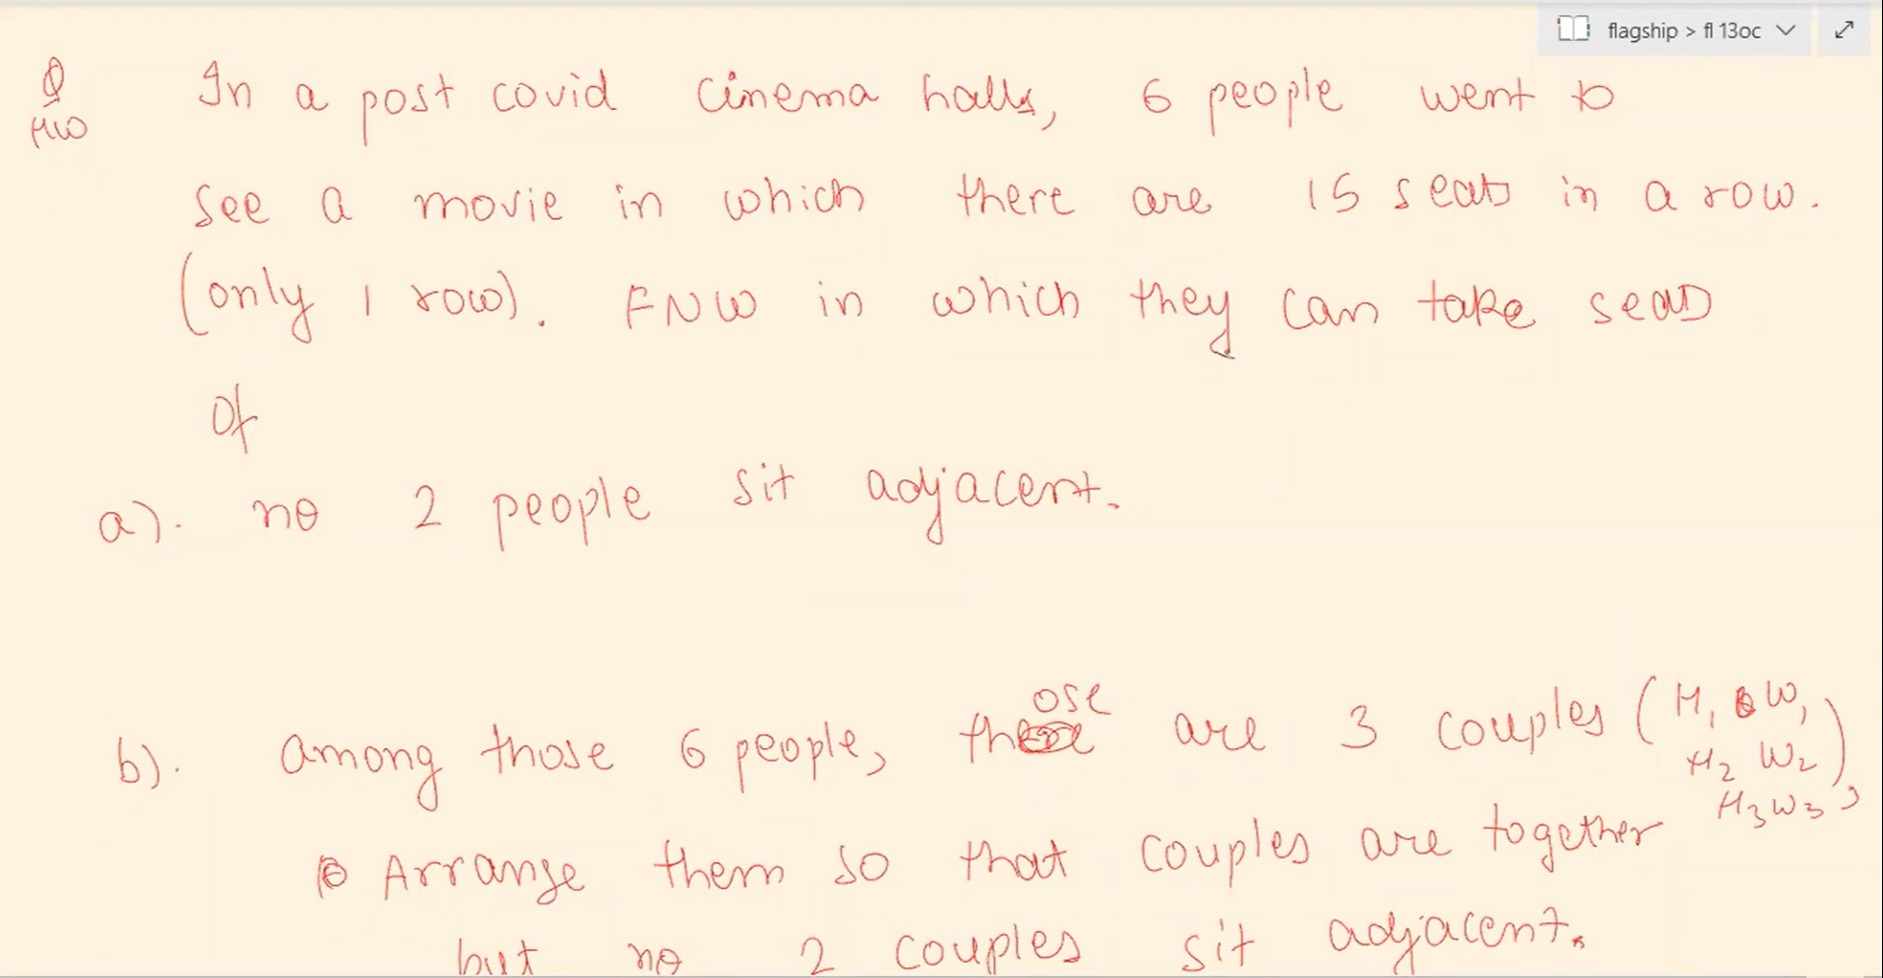 flagship > fl 13oc
Q In a post covid cinema halls, 6 people went to
HW
see a movie in which there are 15 seats in a row.
(only 1 row). FNW in which they can take seats
of
a). no 2 people sit adjacent.
b). among those 6 people, those are 3 couples (H1 W1,
H2 W2)
H3 W3,
Arrange them so that couples are together
but no 2 couples sit adjacent.